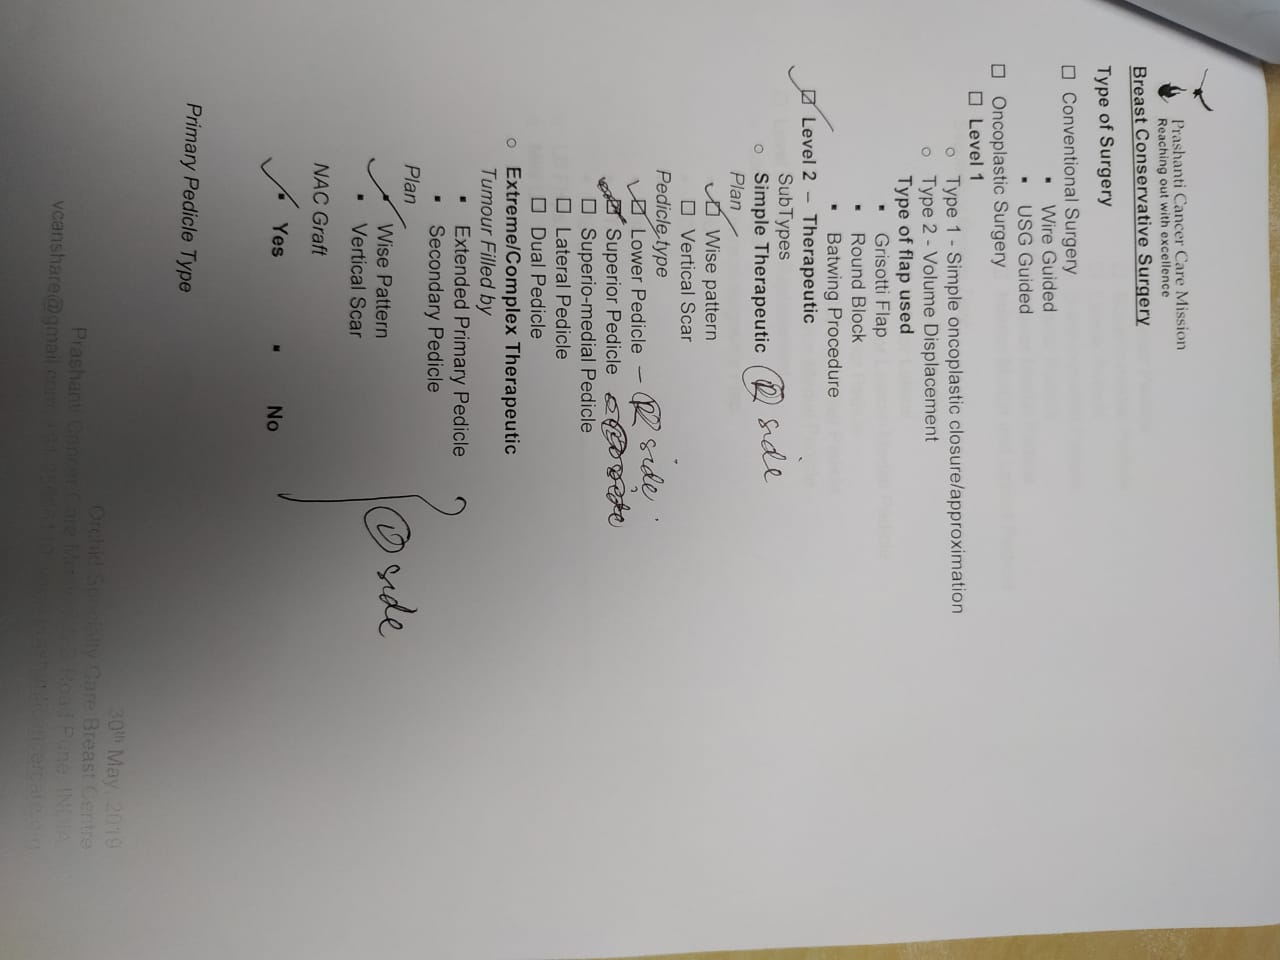 Prashanti Cancer Care Mission
Reaching out with excellence
Breast Conservative Surgery
Type of Surgery
☐ Conventional Surgery
▪ Wire Guided
▪ USG Guided
☐ Oncoplastic Surgery
☐ Level 1
○ Type 1 - Simple oncoplastic closure/approximation
○ Type 2 - Volume Displacement
Type of flap used
▪ Grisotti Flap
▪ Round Block
▪ Batwing Procedure
☑ Level 2 – Therapeutic
SubTypes
○ Simple Therapeutic Ⓡ side
Plan
☑ Wise pattern
☐ Vertical Scar
Pedicle type
☑ Lower Pedicle – Ⓡ side
☐ Superior Pedicle
☐ Superio-medial Pedicle
☐ Lateral Pedicle
☐ Dual Pedicle
○ Extreme/Complex Therapeutic
Tumour Filled by
▪ Extended Primary Pedicle
▪ Secondary Pedicle
Plan
✓ ▪ Wise Pattern Ⓛ side
▪ Vertical Scar
NAC Graft
✓ ▪ Yes ▪ No
Primary Pedicle Type
30th May, 2019
Orchid Speciality Care Breast Centre
Prashanti Cancer Care Mission Road Pune INDIA
vcanshare@gmail.com